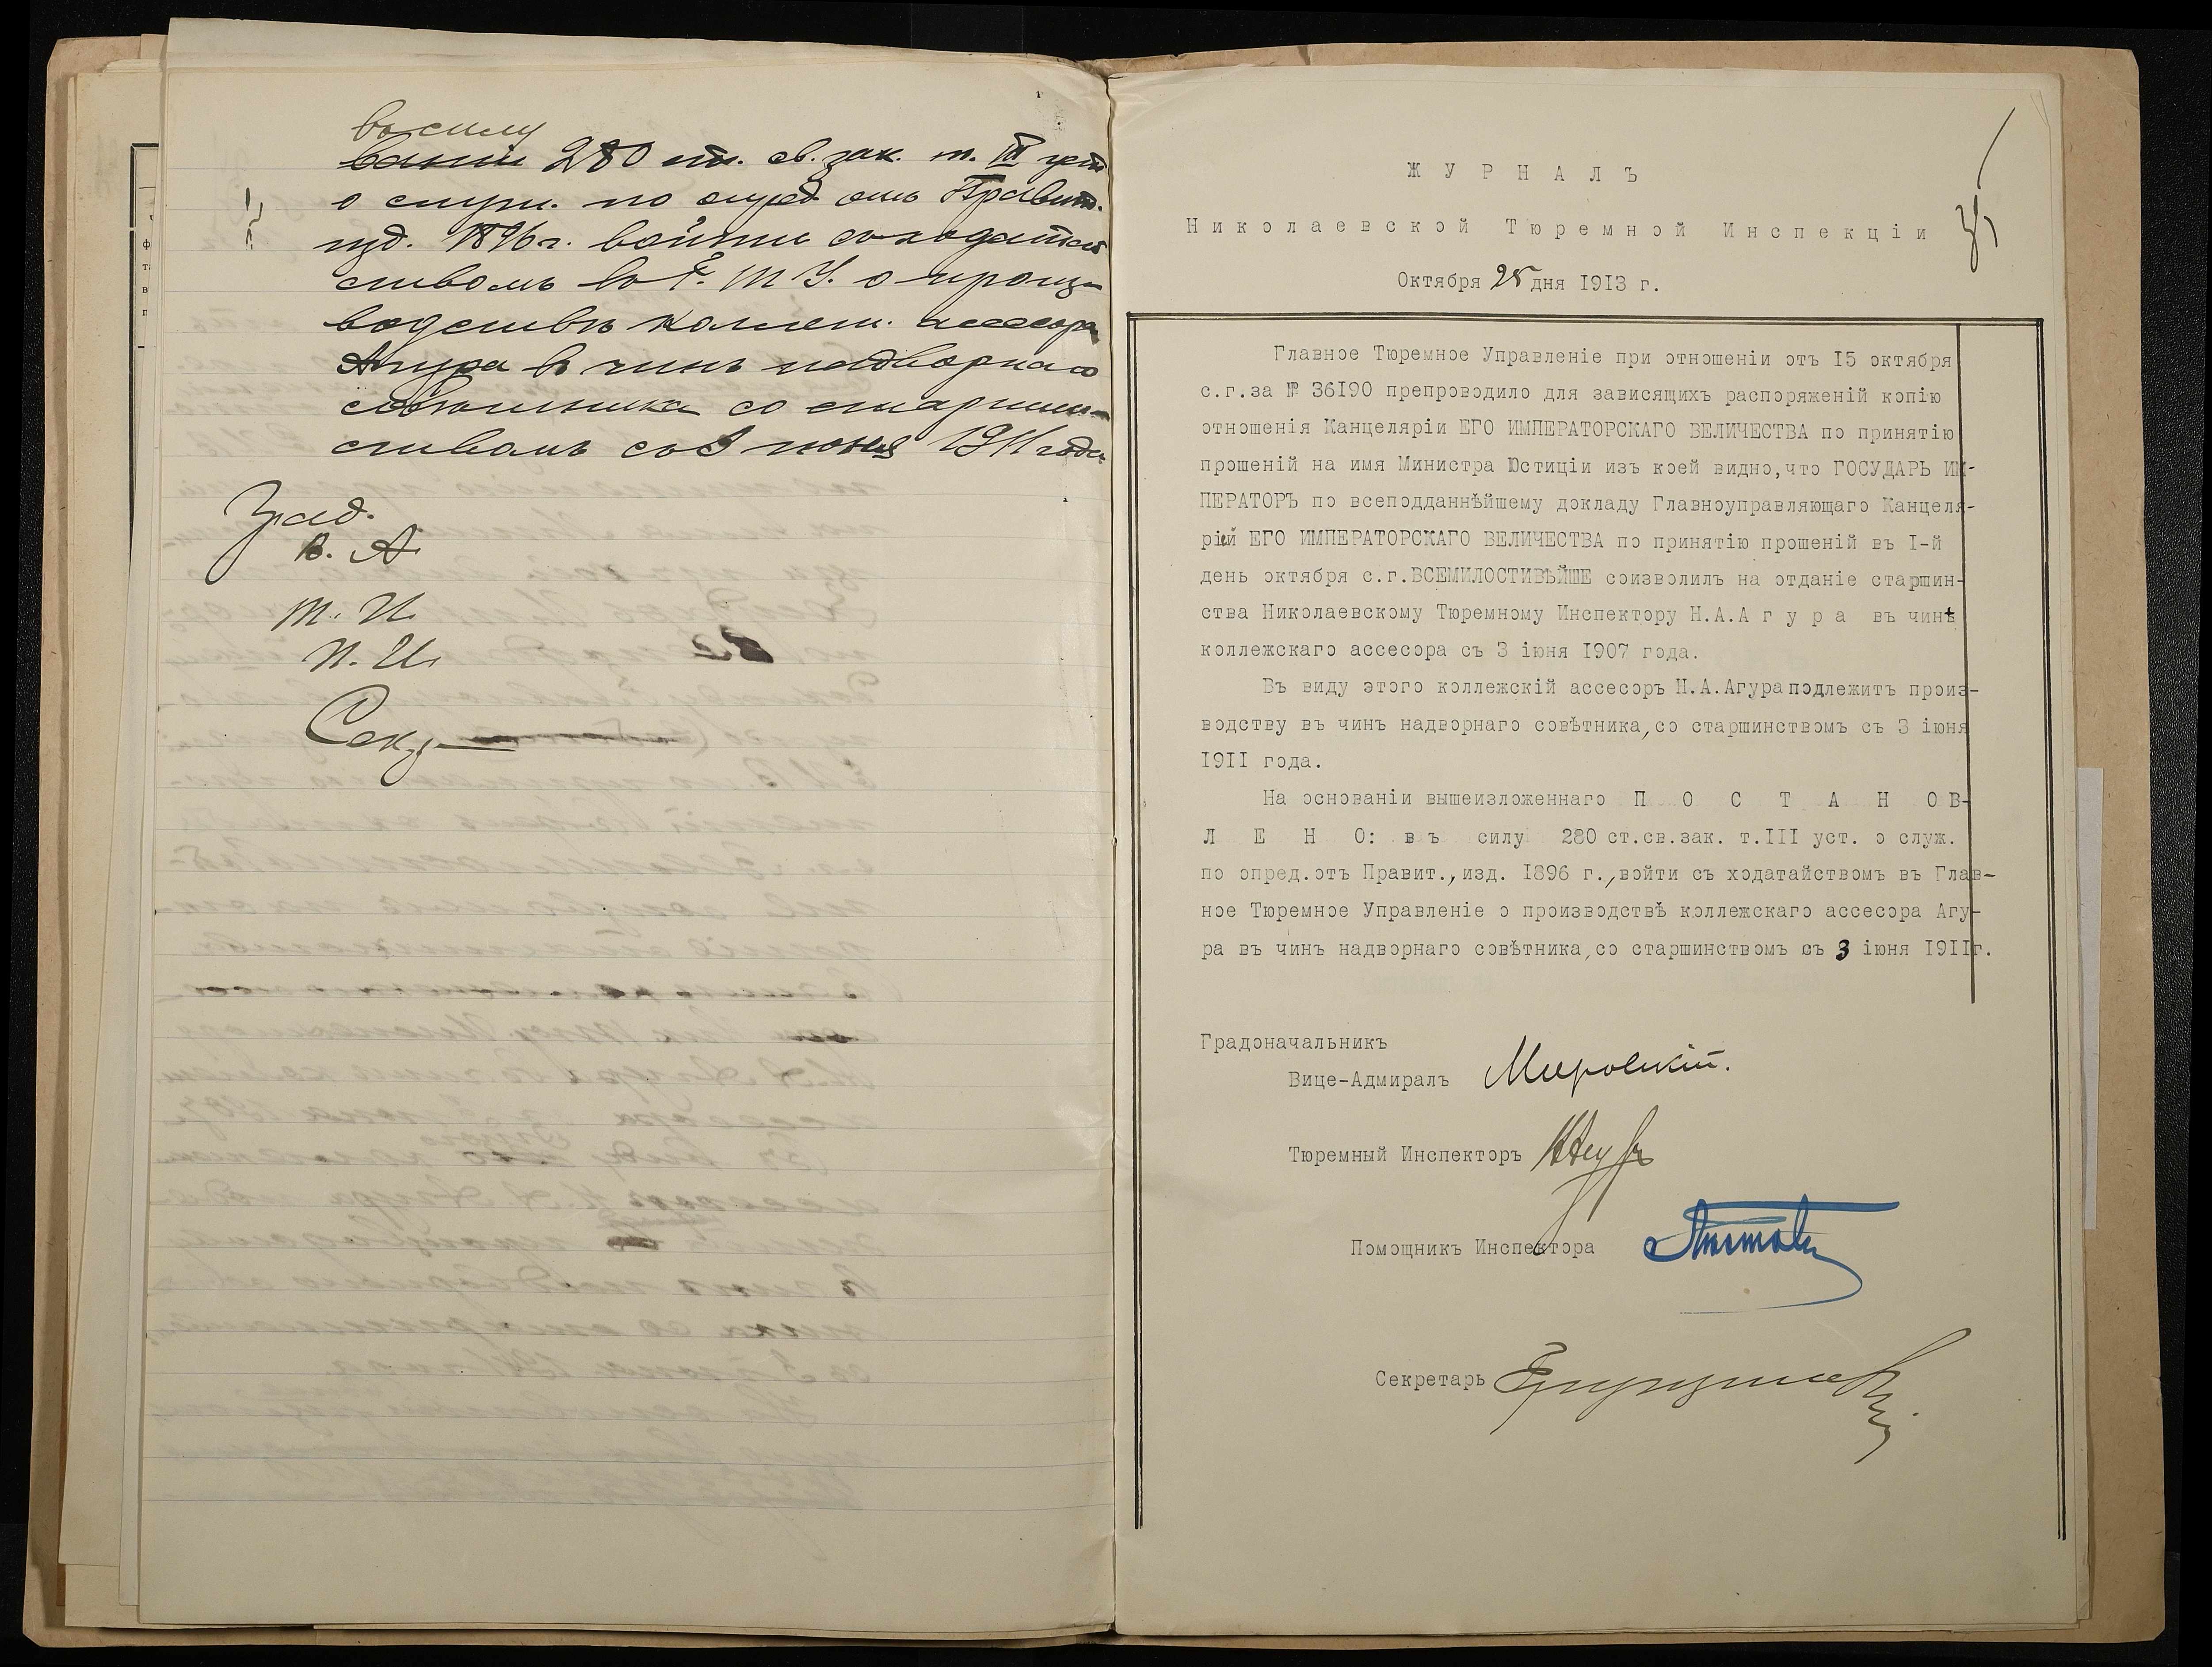 въ силу
280 ст. св. зак. т. III уст.
о служ. по опред. отъ Правит.
изд. 1896 г. войти съ ходатай
ствомъ въ Г. Т. У. о произ-
водствѣ коллеж. ассесора
Агура въ чинъ надворнаго
совѣтника со старшин-
ствомъ съ 3 июня 1911 года
Град.
В. А.
Т. И.
П. И.
Секр
ЖУРНАЛЪ
Николаевской Тюремной Инспекціи
Октября 25 дня 1913 г.
Главное Тюремное Управленіе при отношеніи отъ 15 октября
с.г.за № 36190 препроводило для зависящихъ распоряженій копію
отношенія Канцеляріи ЕГО ИМПЕРАТОРСКАГО ВЕЛИЧЕСТВА по принятію
прошеній на имя Министра Юстиціи изъ коей видно,что ГОСУДАРЬ ИМ-
ПЕРАТОРЪ по всеподданнѣйшему докладу Главноуправляющаго Канцеля-
ріей ЕГО ИМПЕРАТОРСКАГО ВЕЛИЧЕСТВА по принятію прошеній въ I-й
день октября с.г.ВСЕМИЛОСТИВѢЙШЕ соизволилъ на отданіе старшин-
ства Николаевскому Тюремному Инспектору Н.А.Агура въ чинѣ
коллежскаго ассесора съ 3 іюня 1907 года.
Въ виду этого коллежскій ассесоръ Н.А.Агура подлежитъ произ-
водству въ чинъ надворнаго совѣтника,со старшинствомъ съ 3 іюня
1911 года.
На основаніи вышеизложеннаго ПОСТАНОВ-
ЛЕНО: въ силу 280 ст.св.зак. т.III уст. о служ.
по опред.отъ Правит.,изд. 1896 г.,войти съ ходатайствомъ въ Глав-
ное Тюремное Управленіе о производствѣ коллежскаго ассесора Агу-
ра въ чинъ надворнаго совѣтника,со старшинствомъ съ 3 іюня 1911г.
Градоначальникъ
Вице-Адмиралъ
Тюремный Инспекторъ
Помощникъ Инспектора
Секретарь